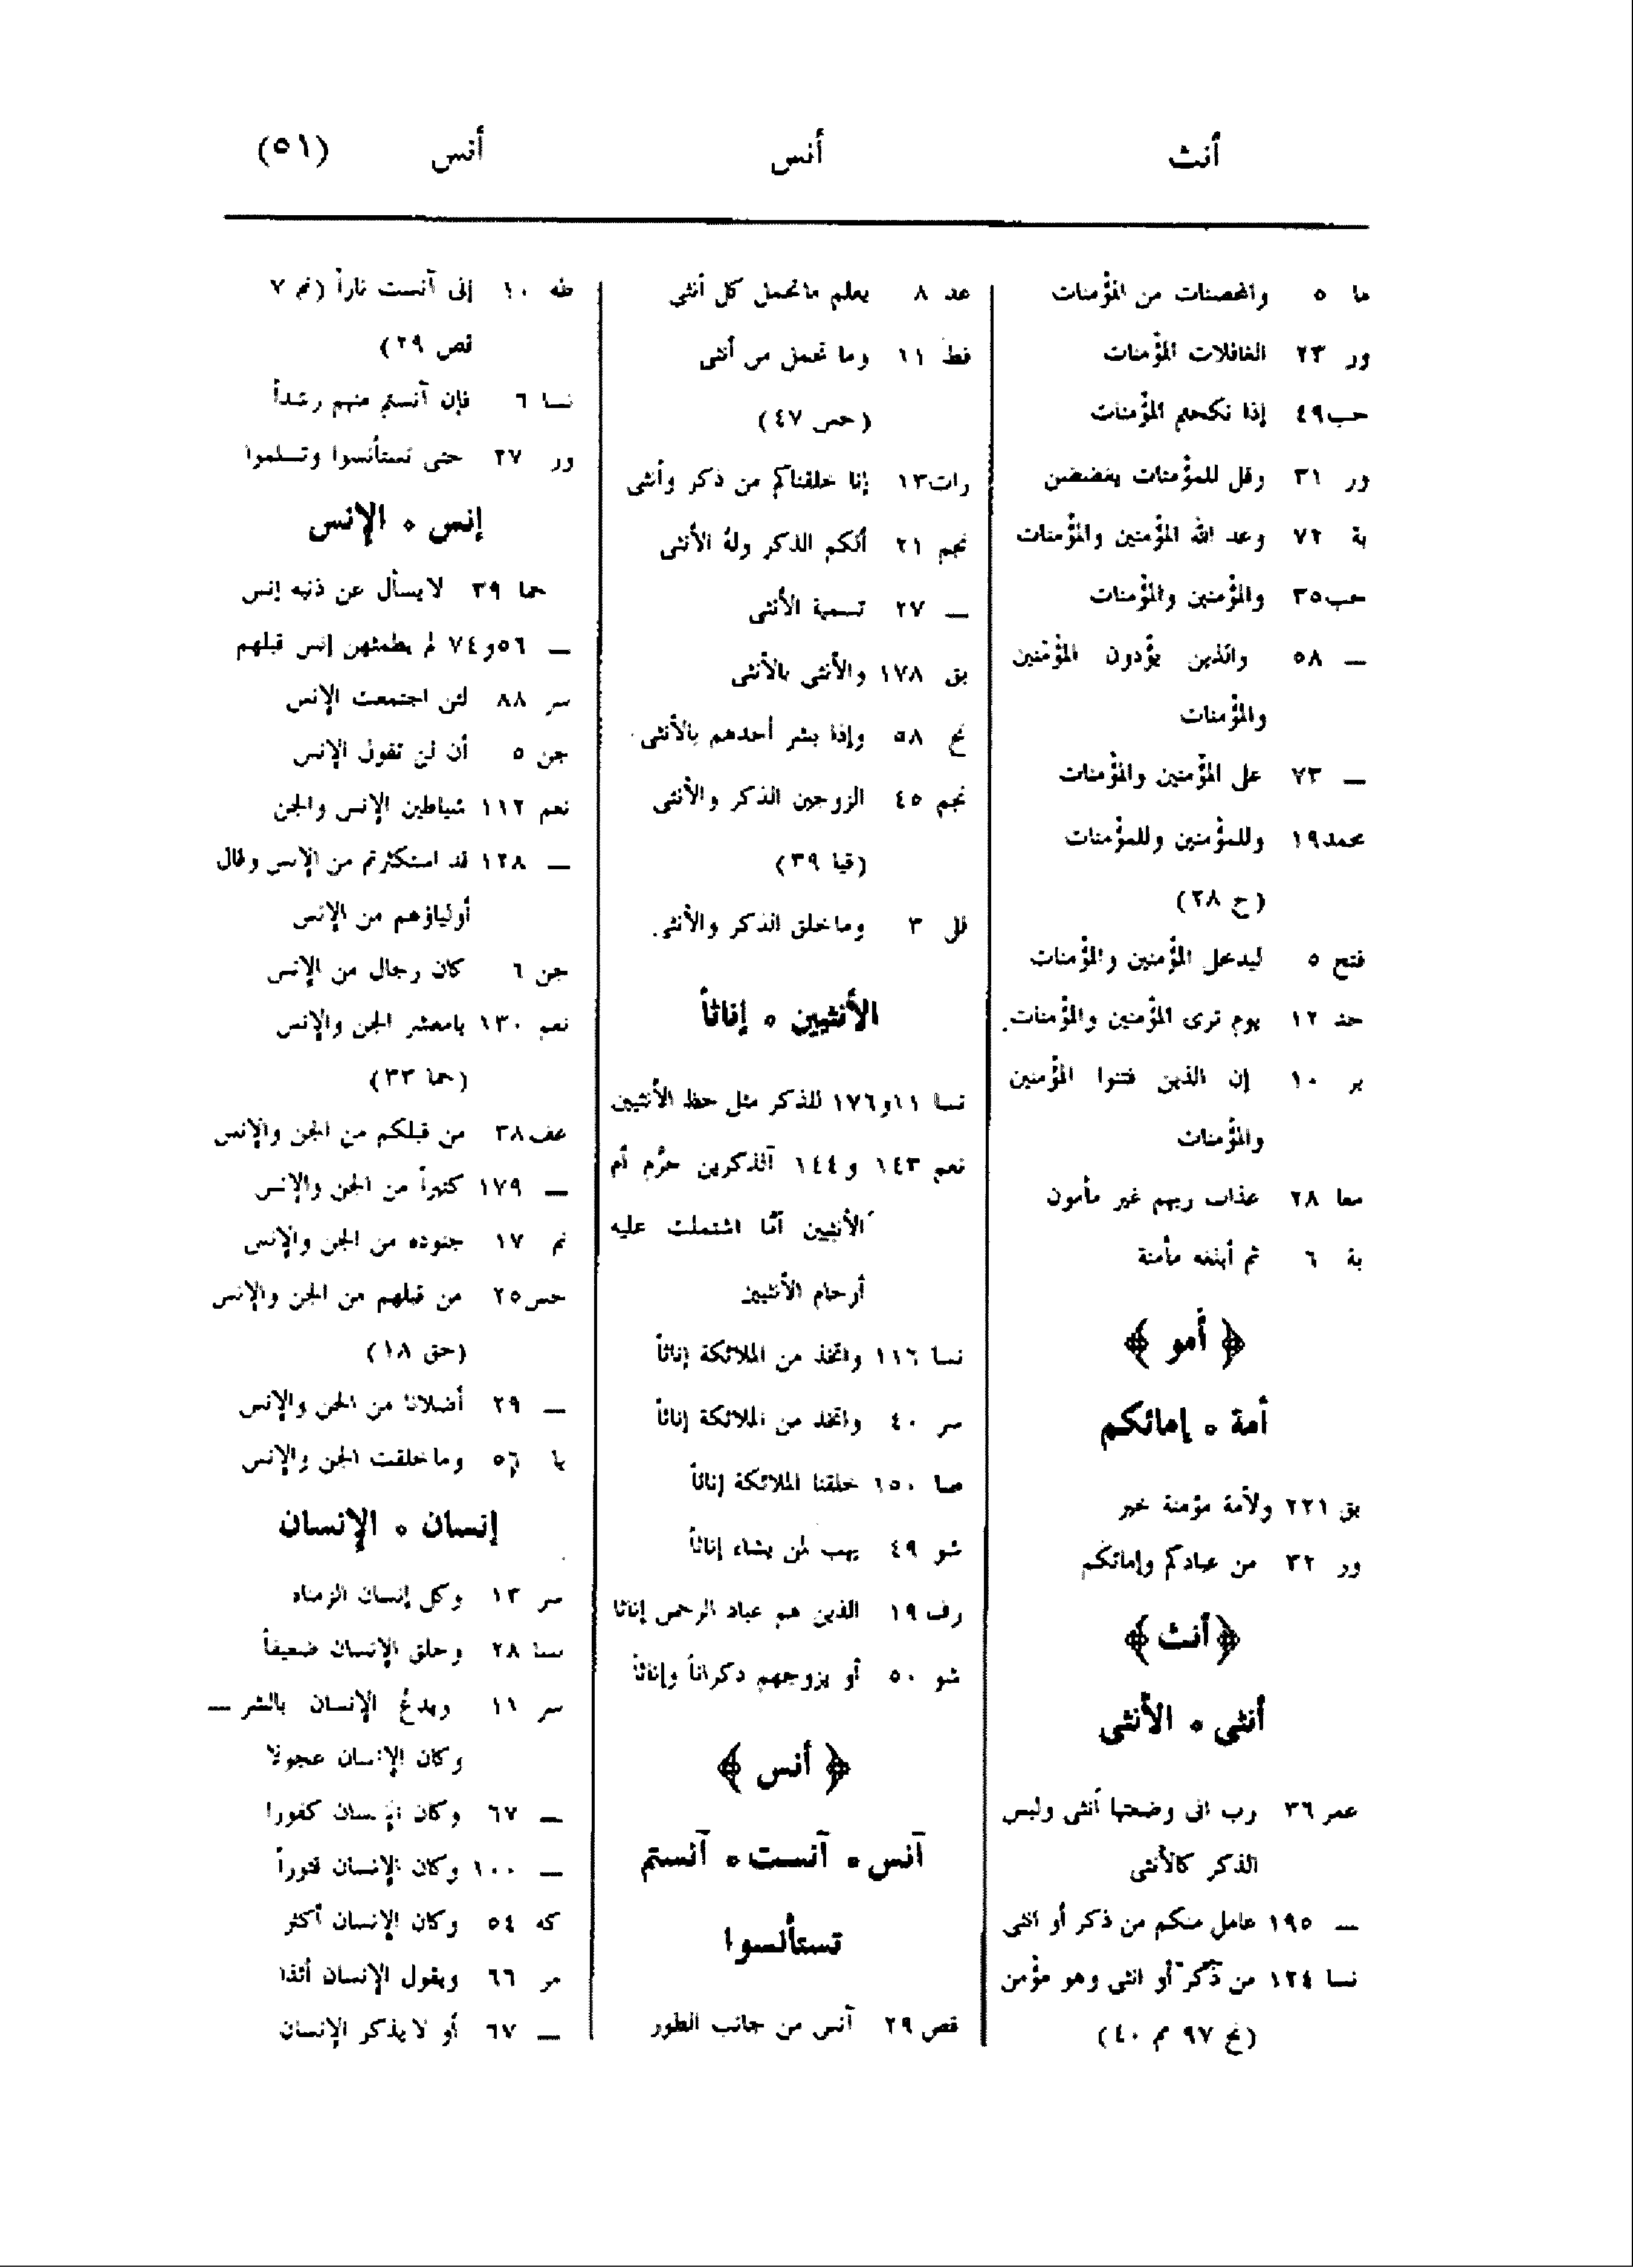 أنث
أنس
أنس (٥١)
ما ٥ والمحصنات من المؤمنات
ور ٢٣ الغافلات المؤمنات
حب ٤٩ إذا نكحتم المؤمنات
ور ٣١ وقل للمؤمنات يغضضن
بة ٧٢ وعد الله المؤمنين والمؤمنات
حب ٣٥ والمؤمنين والمؤمنات
— ٥٨ والذين يؤذون المؤمنين
والمؤمنات
— ٧٣ على المؤمنين والمؤمنات
محمد ١٩ وللمؤمنين وللمؤمنات
(ح ٢٨)
فتح ٥ ليدخل المؤمنين والمؤمنات
حد ١٢ يوم ترى المؤمنين والمؤمنات
بر ١٠ إن الذين فتنوا المؤمنين
والمؤمنات
معا ٢٨ عذاب ربهم غير مأمون
بة ٦ ثم أبلغه مأمنة
﴿ أمو ﴾
أمة ٥ إمائكم
بق ٢٢١ ولأمة مؤمنة خير
ور ٣٢ من عبادكم وإمائكم
﴿ أنث ﴾
أنثى ٥ الأنثى
عمر ٣٦ رب انى وضعتها أنثى وليس
الذكر كالأنثى
— ١٩٥ عامل منكم من ذكر أو انثى
نسا ١٢٤ من ذكر أو انثى وهو مؤمن
(نح ٩٧ مم ٤٠)
عد ٨ يعلم ماتحمل كل أنثى
فط ١١ وما تحمل من أنثى
(حس ٤٧)
رات ١٣ إنا خلقناكم من ذكر وأنثى
نجم ٢١ ألكم الذكر وله الأنثى
— ٢٧ تسمية الأنثى
بق ١٧٨ والأنثى بالأنثى
نح ٥٨ وإذا بشر أحدهم بالأنثى
نجم ٤٥ الزوجين الذكر والأنثى
(قيا ٣٩)
لل ٣ وماخلق الذكر والأنثى
الأنثيين ٥ إناثاً
نسا ١١و١٧٦ للذكر مثل حظ الأنثيين
نعم ١٤٣ و١٤٤ آلذكرين حرَّم أم
الأنثيين أمَّا اشتملت عليه
أرحام الأنثيين
نسا ١١٦ واتخذ من الملائكة إناثاً
سر ٤٠ واتخذ من الملائكة إناثاً
صا ١٥٠ خلقنا الملائكة إناثاً
شو ٤٩ يهب لمن يشاء إناثاً
رف ١٩ الذين هم عباد الرحمن إناثا
شو ٥٠ أو يزوجهم ذكراناً وإناثاً
﴿ أنس ﴾
آنس ٥ آنست ٥ آنستم
تستأنسوا
قص ٢٩ آنس من جانب الطور
طه ١٠ إنى آنست ناراً (نم ٧
قص ٢٩)
نسا ٦ فإن آنستم منهم رشداً
ور ٢٧ حتى تستأنسوا وتسلموا
إنس ٥ الإنس
حما ٣٩ لايسأل عن ذنبه إنس
— ٥٦و٧٤ لم يطمثهن إنس قبلهم
سر ٨٨ لئن اجتمعت الإنس
جن ٥ أن لن تقول الإنس
نعم ١١٢ شياطين الإنس والجن
— ١٢٨ قد استكثرتم من الإنس وقال
أولياؤهم من الإنس
جن ٦ كان رجال من الإنس
نعم ١٣٠ يامعشر الجن والإنس
(حما ٣٣)
عف ٣٨ من قبلكم من الجن والإنس
— ١٧٩ كثيراً من الجن والإنس
نم ١٧ جنوده من الجن والإنس
حس ٢٥ من قبلهم من الجن والإنس
(حق ١٨)
— ٢٩ أضلانا من الجن والإنس
يا ٥٦ وماخلقت الجن والإنس
إنسان ٥ الإنسان
سر ١٣ وكل إنسان الزمناه
نسا ٢٨ وخلق الإنسان ضعيفاً
سر ١١ ويدعُ الإنسان بالشر —
وكان الإنسان عجولا
— ٦٧ وكان الإنسان كفورا
— ١٠٠ وكان الإنسان قتوراً
كه ٥٤ وكان الإنسان أكثر
مر ٦٦ ويقول الإنسان أئذا
— ٦٧ أو لايذكر الإنسان